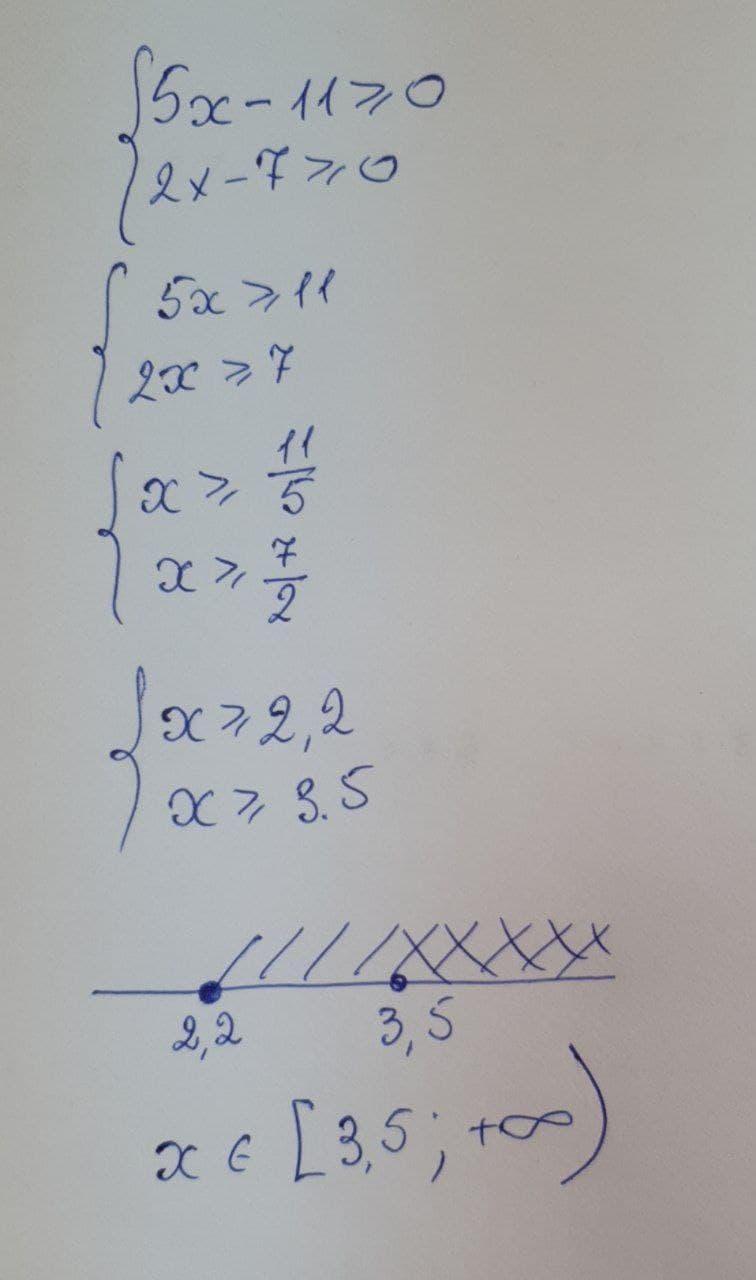 5x - 11 ⩾ 0
2x - 7 ⩾ 0
5x ⩾ 11
2x ⩾ 7
x ⩾ 11/5
x ⩾ 7/2
x ⩾ 2,2
x ⩾ 3.5
2,2 3,5
x ∈ [3,5; +∞)